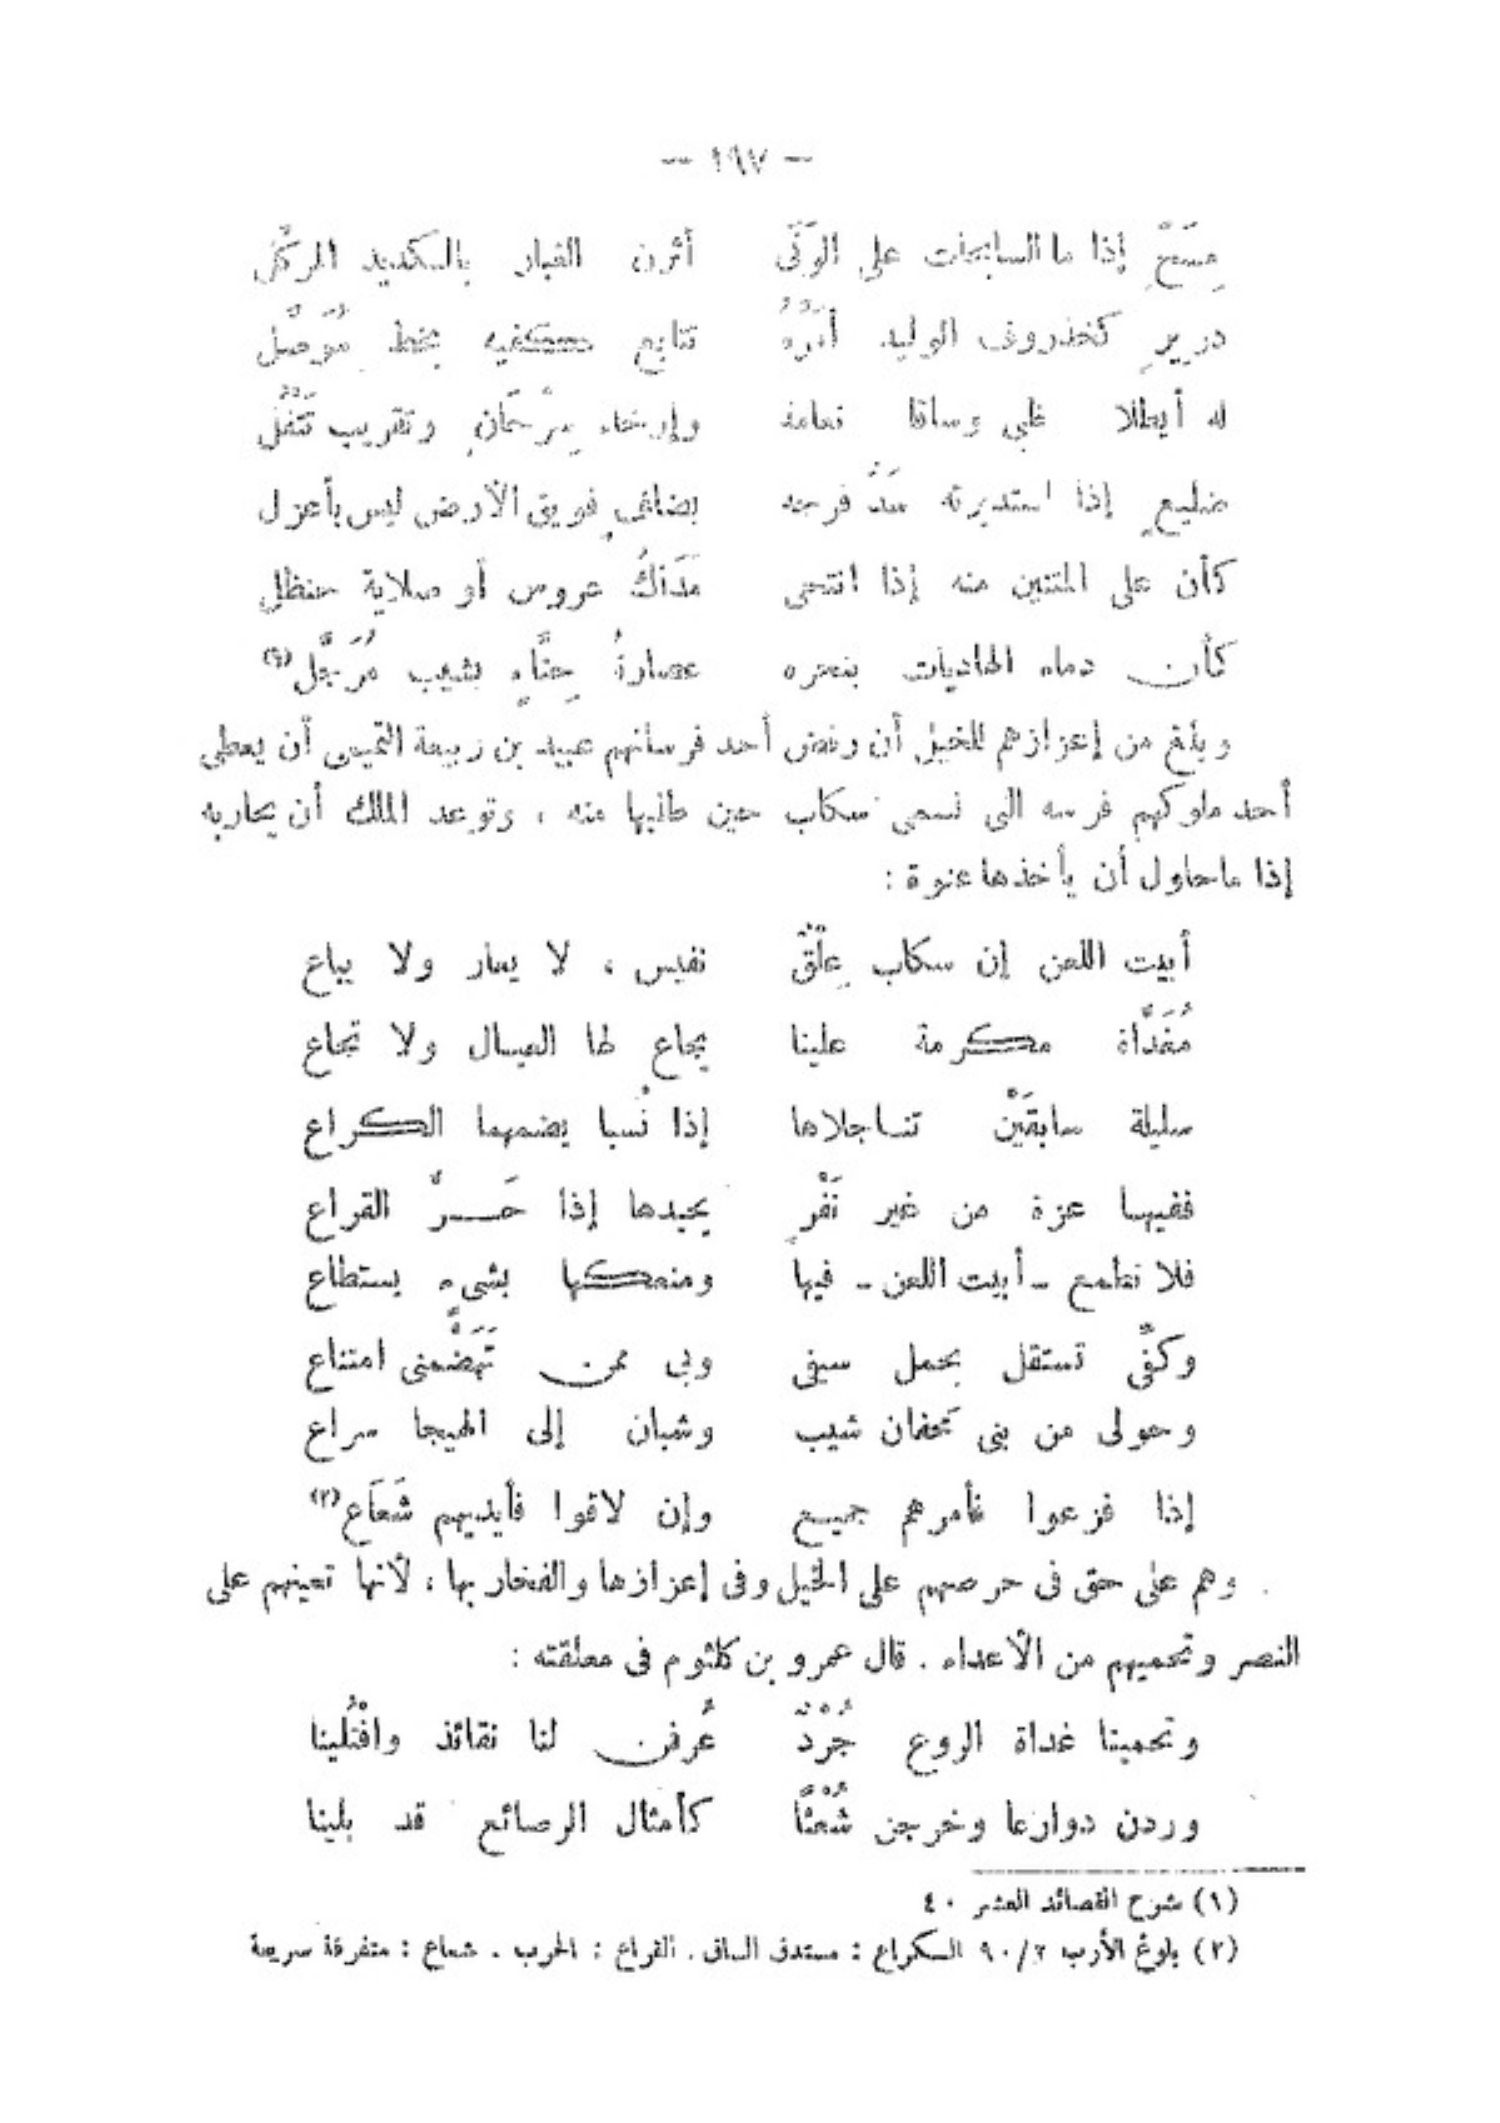 — ١٩٧ —
مِسَحٍّ إذا ما السابحات على الوَنَى أثرن الغبار بالكديد المركَّل
دريرٍ كخذروف الوليد أمَرَّهُ تتابع كفيه بخيط مُوَصَّل
له أيطلا ظبي وساقا نعامة وإرخاء سِرْحَانٍ وتقريب تَتْفُل
ضليعٍ إذا استدبرته سَدَّ فرجه بضافٍ فويق الأرض ليس بأعزل
كأن على المتنين منه إذا انتحى مَدَاكُ عروس أو صلاية حنظل
كأن دماء الهاديات بنحره عصارةُ حِنَّاءٍ بشيب مُرَجَّل (١)
وبلغ من إعزازهم للخيل أن رفض أحد فرسانهم عبيد بن ربيعة التميمى أن يعطى
أحد ملوكهم فرسه التى تسمى سكاب حين طلبها منه ، وتوعد الملك أن يحاربه
إذا ما حاول أن يأخذها عنوة :
أبيت اللعن إن سكاب عِلْقٌ نفيس ، لا يعار ولا يباع
مُفَدَّاة مكرمة علينا يجاع لها العيال ولا تجاع
سليلة سابقَيْن تناجلاها إذا نُسبا يضمهما الكراع
ففيها عزة من غير نَفْرٍ يحيدها إذا حَرَّ القراع
فلا تطمع – أبيت اللعن – فيها ومنعكها بشىء يستطاع
وكفِّى تستقل بحمل سيفى وبى ممن تَهَضَّمنى امتناع
وحولى من بنى قحفان شيب وشبان إلى الهيجا سراع
إذا فزعوا فأمرهم جميع وإن لاقوا فأيديهم شَعَاع (٢)
وهم على حق فى حرصهم على الخيل وفى إعزازها والفخار بها ، لأنها تعينهم على
النصر وتحميهم من الأعداء . قال عمرو بن كلثوم فى معلقته :
وتحمينا غداة الروع جُرْدٌ عُرفن لنا نقائذ وافْتُلينا
وردن دوارعا وخرجن شُعْثًا كأمثال الرصائع قد بلينا
(١) شرح القصائد العشر ٤٠
(٢) بلوغ الأرب ٢/٩٠ الكراع : مستدق الساق . القراع : الحرب . شعاع : متفرقة سريعة